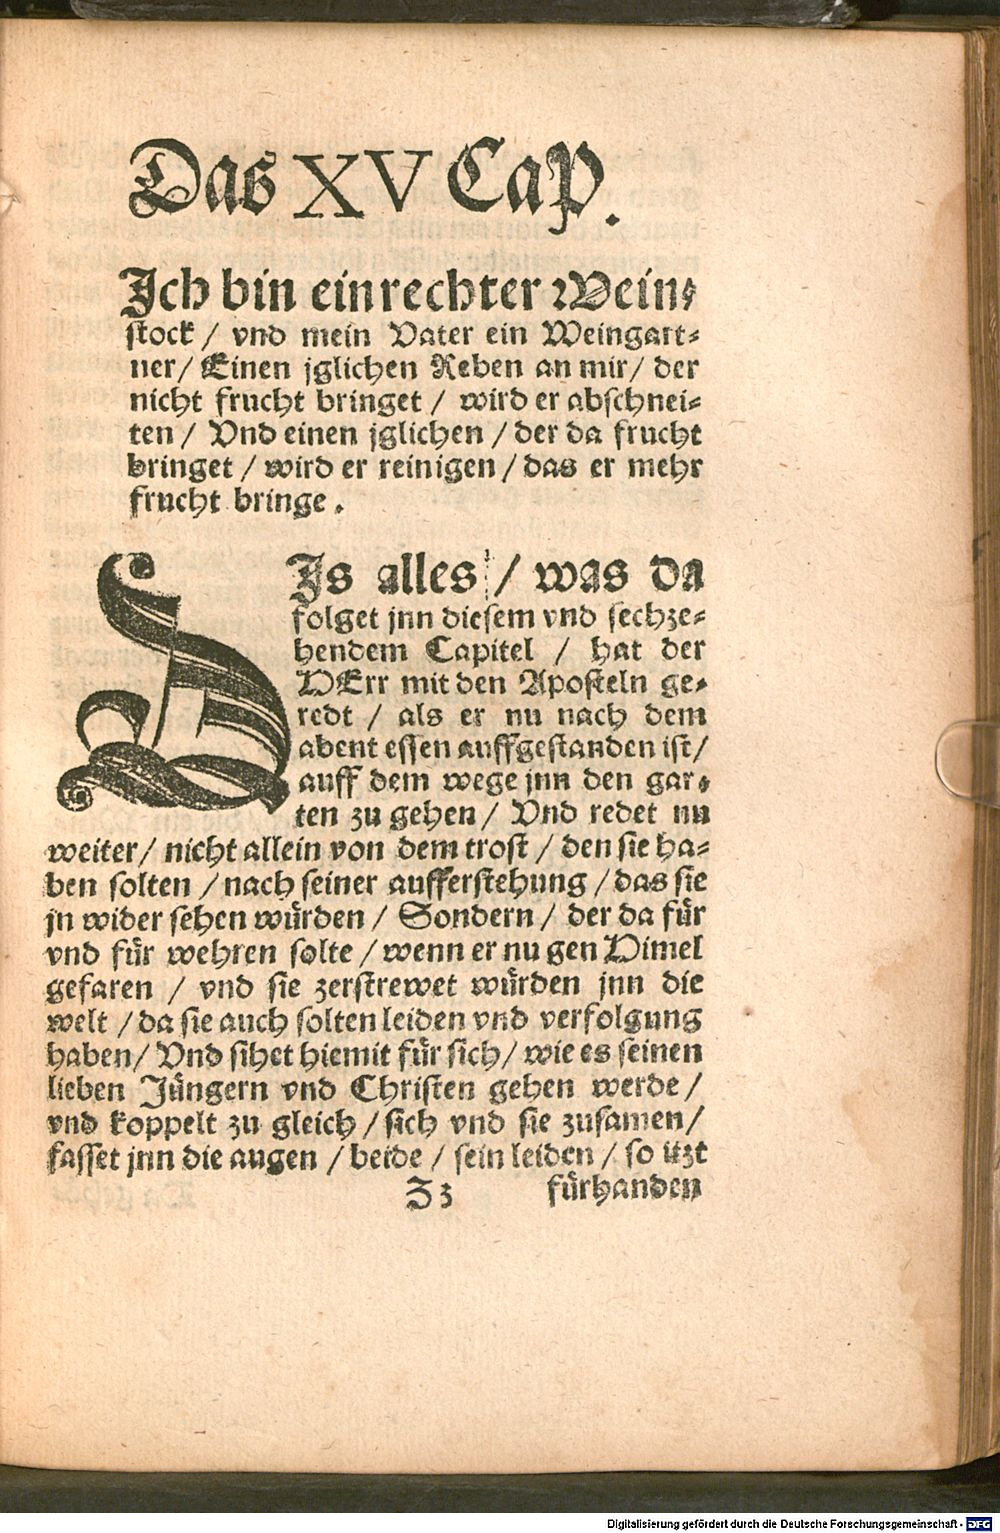 Das XV Cap.
Ich bin ein rechter Wein⸗
stock / vnd mein Vater ein Weingart⸗
ner / Einen jglichen Reben an mir / der
nicht frucht bringet / wird er abschnei⸗
ten / Vnd einen jglichen / der da frucht
bringet / wird er reinigen / das er mehr
frucht bringe .
DIs alles / was da
folget jnn diesem vnd sechze⸗
hendem Capitel / hat der
HErr mit den Aposteln ge⸗
redt / als er nu nach dem
abent essen auffgestanden ist /
auff dem wege jnn den gar⸗
ten zu gehen / Vnd redet nu
weiter / nicht allein von dem trost / den sie ha⸗
ben solten / nach seiner aufferstehung / das sie
jn wider sehen würden / Sondern / der da für
vnd für wehren solte / wenn er nu gen Himel
gefaren / vnd sie zerstrewet würden jnn die
welt / da sie auch solten leiden vnd verfolgung
haben / Vnd sihet hiemit für sich / wie es seinen
lieben Jüngern vnd Christen gehen werde /
vnd koppelt zu gleich / sich vnd sie zusamen /
fasset jnn die augen / beide / sein leiden / so itzt
Zz fürhanden
Digitalisierung gefördert durch die Deutsche Forschungsgemeinschaft - DFG